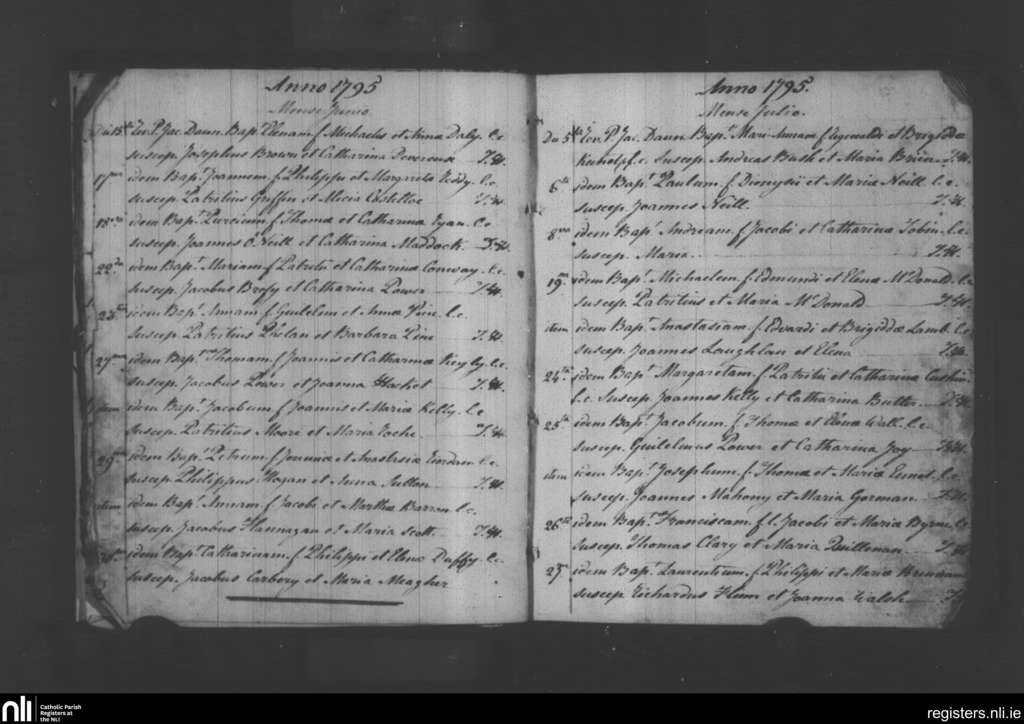 Anno 1795
Mense Junio.
Die 15ta Rev. P. Jac. Dann. Bapt. Elenam f. Michaelis et Anna Daly. l.c
Suscep. Josephus Brown et Catharina Devereux
17ma idem Bapt. Joannem f. Philippi et Margareta Keddy. l.c
suscep. Patritius Griffin et Alicia Costelloe
18va idem Bapt. f. Thoma et Catharina Ryan. l.c
suscep. Joannes O'Neill et Catharina Maddock.
22da idem Bapt. Mariam f. Patritii et Catharina Conway. l.c
suscep. Jacobus Brofy et Catharina Power
idem Bapt. Annam f. Guilelmi et Anna l.c.
suscep. Patritius Phelan et Barbara
27ma idem Bapt. Thomam f. Joannis et Catharina l.c.
suscep. Jacobus Power et Joanna Hacket
item idem Bapt. Jacobum f. Joannis et Maria Kelly. l.c
suscep. Patritius Moore et Maria Roche.
29na idem Bapt. Petrum f. et Anastasia l.c
suscep. Philippus Hogan et Anna Sutton
item idem Bapt. Annam f. Jacobi et Martha Barron l.c.
suscep. Jacobus Flannagan et Maria Scott.
idem Bapt. Catharinam f. Philippi et Elena Duffy. l.c
suscep. Jacobus Carbery et Maria Meagher
Anno 1795.
Mense Julio.
Die 5ta Rev. P. Jac. Dann Bapt. Mari-Annam f. et Brigida
l.c. Suscep. Andreas Bush et Maria Brien
6ta idem Bapt. Paulum f. Dionysii et Maria Neill. l.c.
suscep. Joannes Neill.
8va idem Bapt. Andream f. Jacobi et Catharina Tobin. l.c.
suscep. Maria
19na idem Bapt. Michaelem f. Edmundi et Elena McDonald. l.c
suscep. Patritius et Maria McDonald
item idem Bapt. Anastasiam f. Edvardi et Brigidda Lamb. l.c
suscep. Joannes Laughlan et Elena
24ta idem Bapt. Margaretam f. Patritii et Catharina
l.c. Suscep. Joannes Kelly et Catharina Butler.
25ta idem Bapt. Jacobum f. Thoma et Elena Wall. l.c.
suscep. Guilelmus Power et Catharina Joy
item idem Bapt. Josephum f. Thoma et Maria l.c.
suscep. Joannes Mahony et Maria Gorman
26ta idem Bapt. Franciscam f. l. Jacobi et Maria Byrne. l.c
suscep. Thomas Clary et Maria Quilleman
idem Bap. Laurentium f. Philippi et Maria Brennan
suscep. Richardus et Joanna Walsh
nli
Catholic Parish
Registers at
the NLI
registers.nli.ie